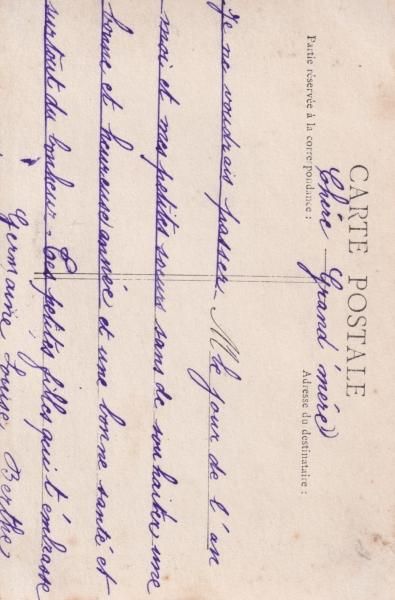 CARTE POSTALE
Partie réservée à la correspondance :
Adresse du destinataire :
Chère Grand mère
Je ne voudrais passer le jour de l'an
M
moi et mes petites sœurs sans de souhaiter une
bonne et heureuse année et une bonne santé et
surtout du bonheur. Tes petites filles qui t'embrasse
Germaine Louise Berthe